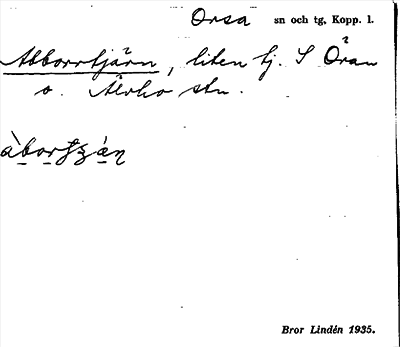 Orsa sn och tg, Kopp. l.
Abborrtjärn, liten tj. S Öran
o. Älvho stn.
Bror Lindén 1935.